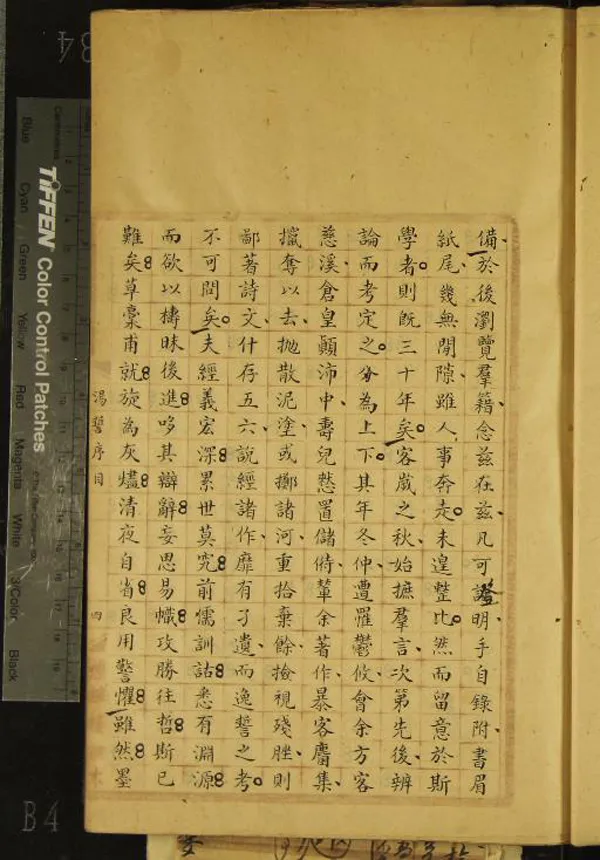 備於後瀏覽羣籍念茲在茲凡可證明手自錄附書眉
紙尾幾無閒隙雖人事奔走未遑整比然而留意於斯
學者則既三十年矣客歲之秋始摭羣言次第先後辨
論而考定之分為上下其年冬仲遭罹鬱攸會余方客
慈溪倉皇顚沛中壽兒慭置儲偫輦余著作暴客麕集
攫奪以去拋散泥塗或擲諸河重拾棄餘撿視殘脞則
鄙著詩文什存五六說經諸作靡有孑遺而逸誓之考
不可問矣夫經義宏深累世莫究前儒訓詁悉有淵源
而欲以檮昧後進哆其辯辭妄思易幟攻勝往哲斯已
難矣草稾甫就旋為灰燼清夜自省良用警懼雖然墨
湯誓序目 四
TIFFEN Color Control Patches
Blue Cyan Green Yellow Red Magenta White 3/Color Black
Centimetres
B4